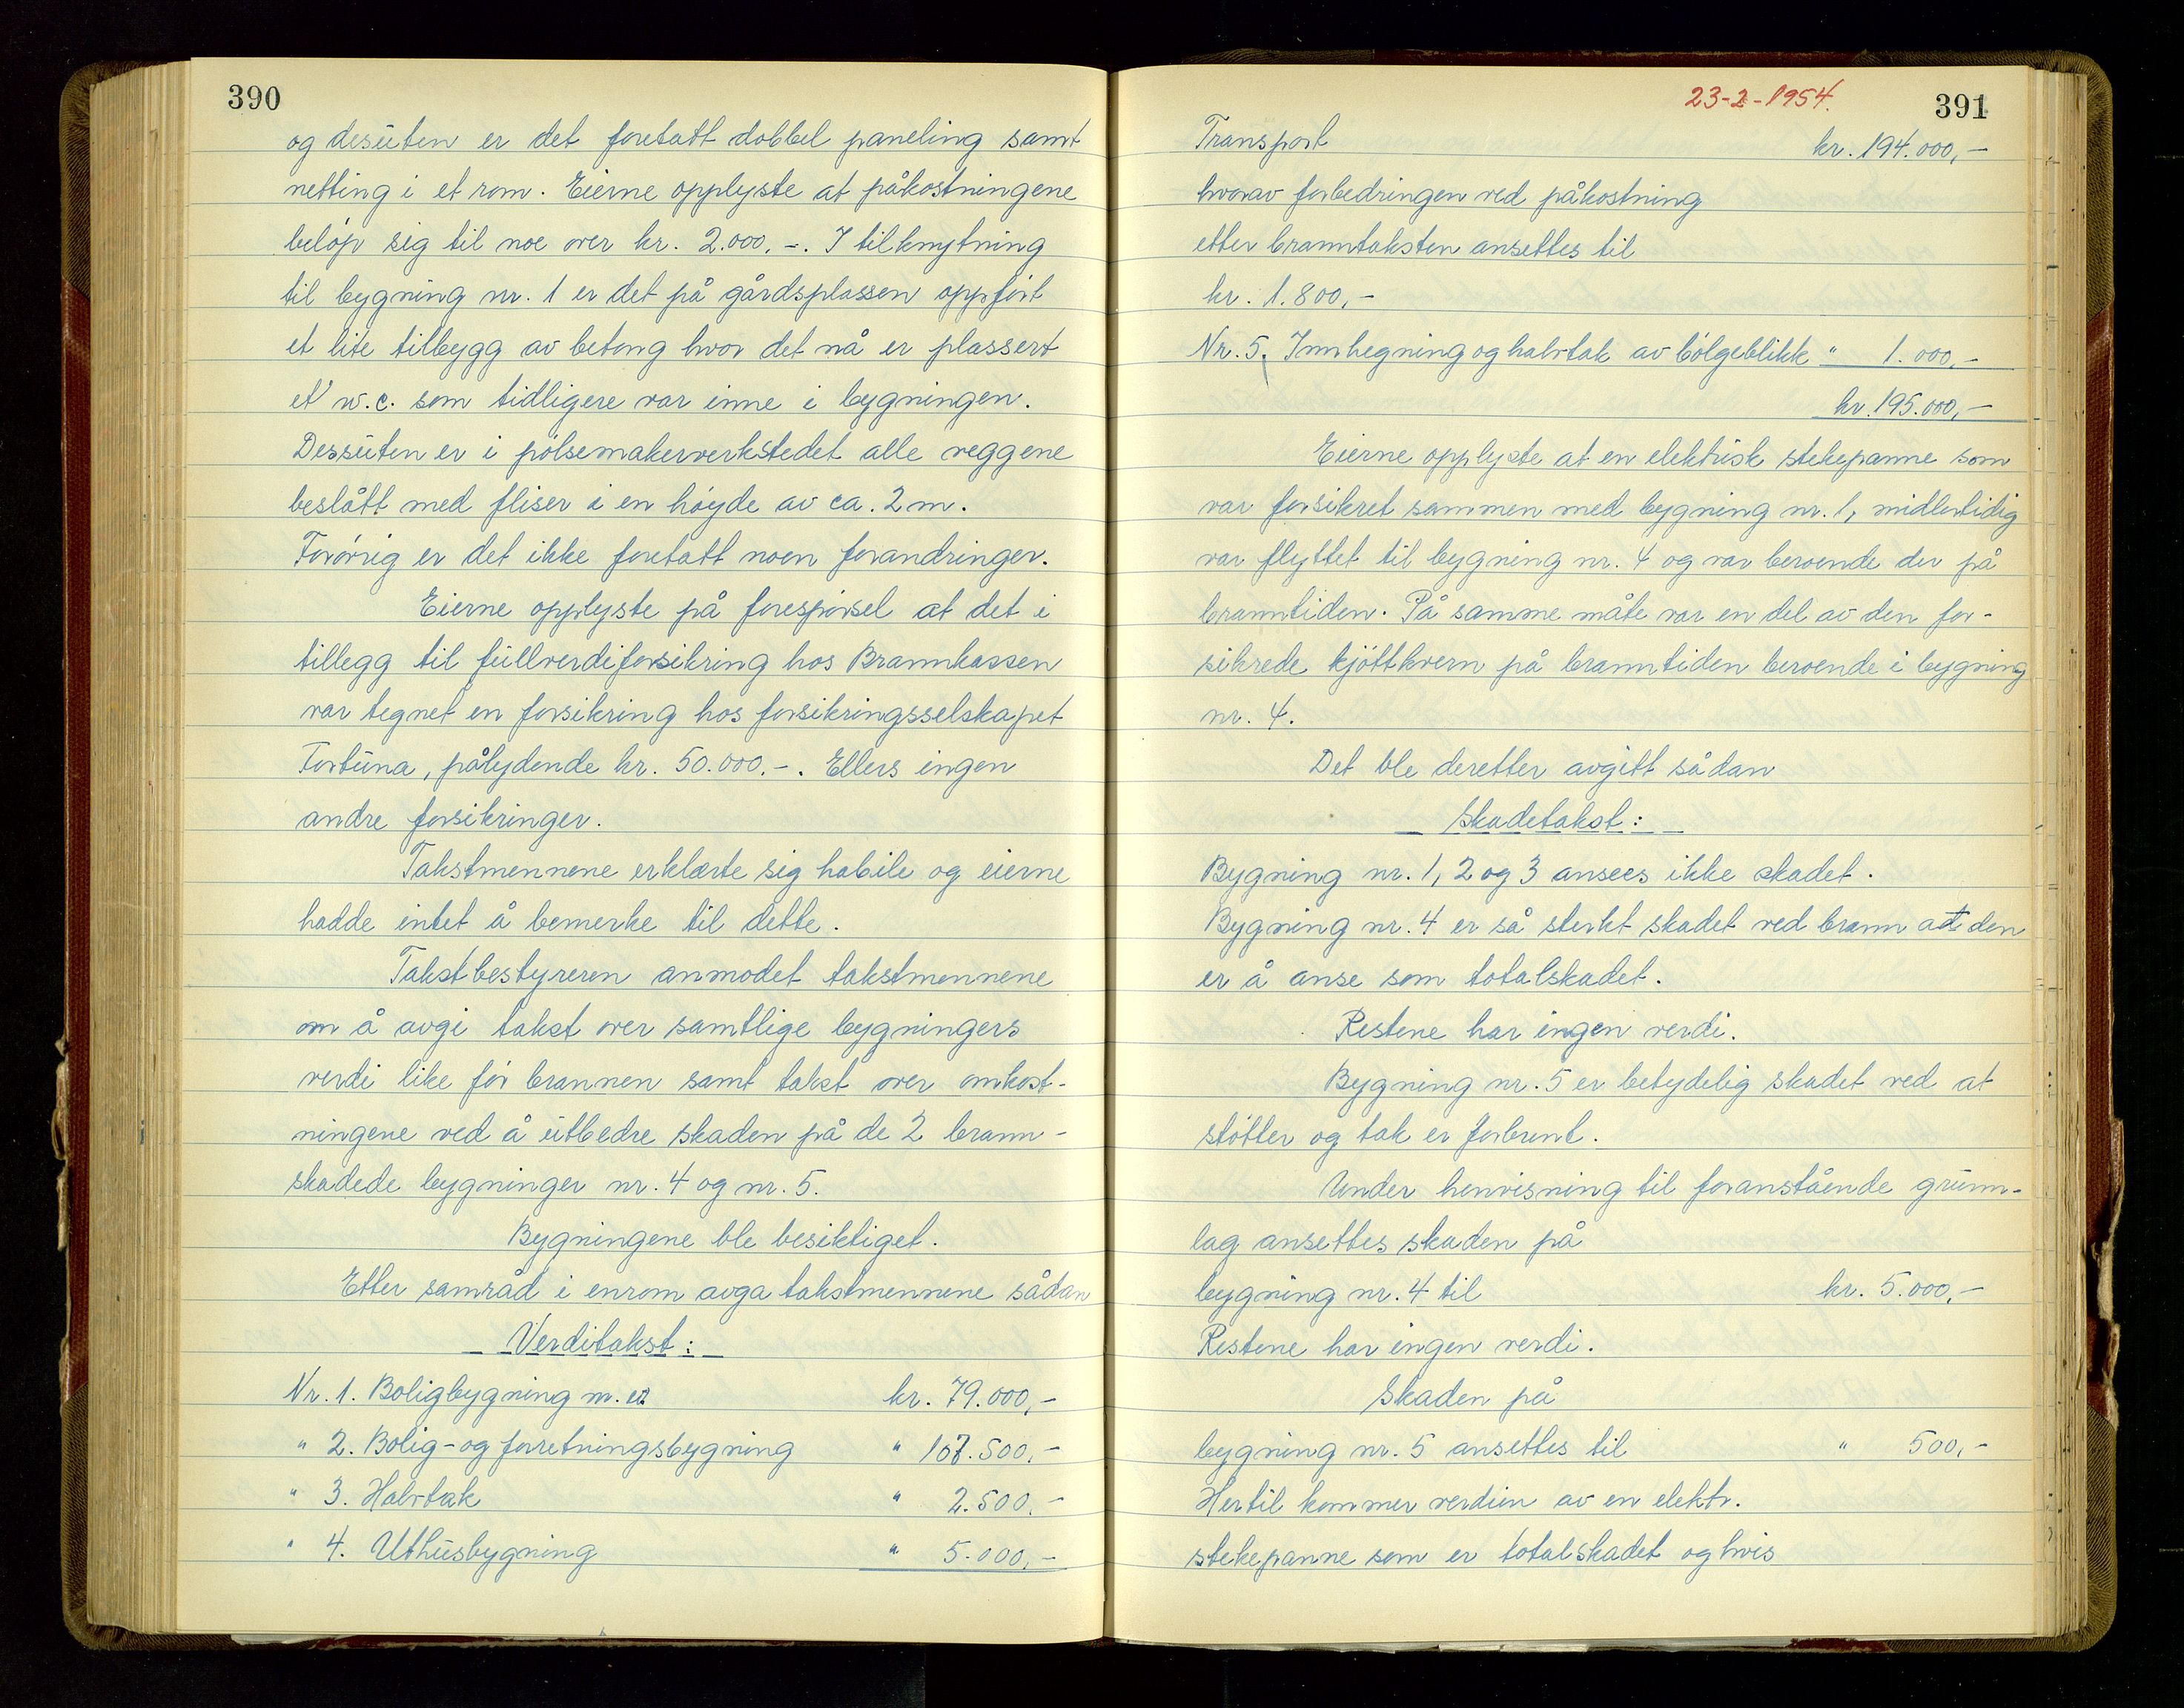 390
og desuten er det foretatt dobbel paneling samt
netting i et rom. Eierne opplyste at påkostningene
beløp sig til noe over kr. 2.000.-. I tilknytning
til bygning nr. 1 er det på gårdsplassen oppført
et lite tilbygg av betong hvor det nå er plassert
et w.c. som tidligere var inne i bygningen.
Dessuten er i pølsemakerverkstedet alle veggene
beslått med fliser i en høyde av ca. 2 m.
Forøvrig er det ikke foretatt noen forandringer.
Eierne opplyste på forespørsel at det i
tillegg til fullverdiforsikring hos Brannkassen
var tegnet en forsikring hos forsikringsselskapet
Fortuna, pålydende kr. 50.000.-. Ellers ingen
andre forsikringer.
Takstmennene erklærte sig habile og eierne
hadde intet å bemerke til dette.
Takstbestyreren anmodet takstmennene
om å avgi takst over samtlige bygningers
verdi like før brannen samt takst over omkost-
ningene ved å utbedre skaden på de 2 brann-
skadede bygninger nr. 4 og nr. 5.
Bygningene ble besiktiget.
Etter samråd i enrom avga takstmennene sådan
Verditakst:
Nr. 1. Boligbygning m. kr. 79.000,-
" 2. Bolig- og forretningsbygning " 107.500,-
" 3. Halvtak " 2.500.-
" 4. Uthusbygning " 5.000,-
23-2-1954.
391
Transport kr. 194.000,-
hvorav forbedringen ved påkostning
etter branntaksten ansettes til
kr. 1.800,-
Nr. 5. Innhegning og halvtak av bølgeblikk " 1.000,-
kr. 195.000,-
Eierne opplyste at en elektrisk stekepanne som
var forsikret sammen med bygning nr. 1, midlertidig
var flyttet til bygning nr. 4 og var beroende der på
branntiden. På samme måte var en del av den for-
sikrede kjøttkvern på branntiden beroende i bygning
nr. 4.
Det ble deretter avgitt sådan
Skadetakst:
Bygning nr. 1, 2 og 3 ansees ikke skadet.
Bygning nr. 4 er så sterkt skadet ved brann at den
er å anse som totalskadet.
Restene har ingen verdi.
Bygning nr. 5 er betydelig skadet ved at
støtter og tak er forbrent.
Under henvisning til foranstående grunn-
lag ansettes skaden på
bygning nr. 4 til kr. 5.000,-
Restene har ingen verdi.
Skaden på
bygning nr. 5 ansettes til " 500,-
Hertil kommer verdien av en elektr.
stekepanne som er totalskadet og hvis